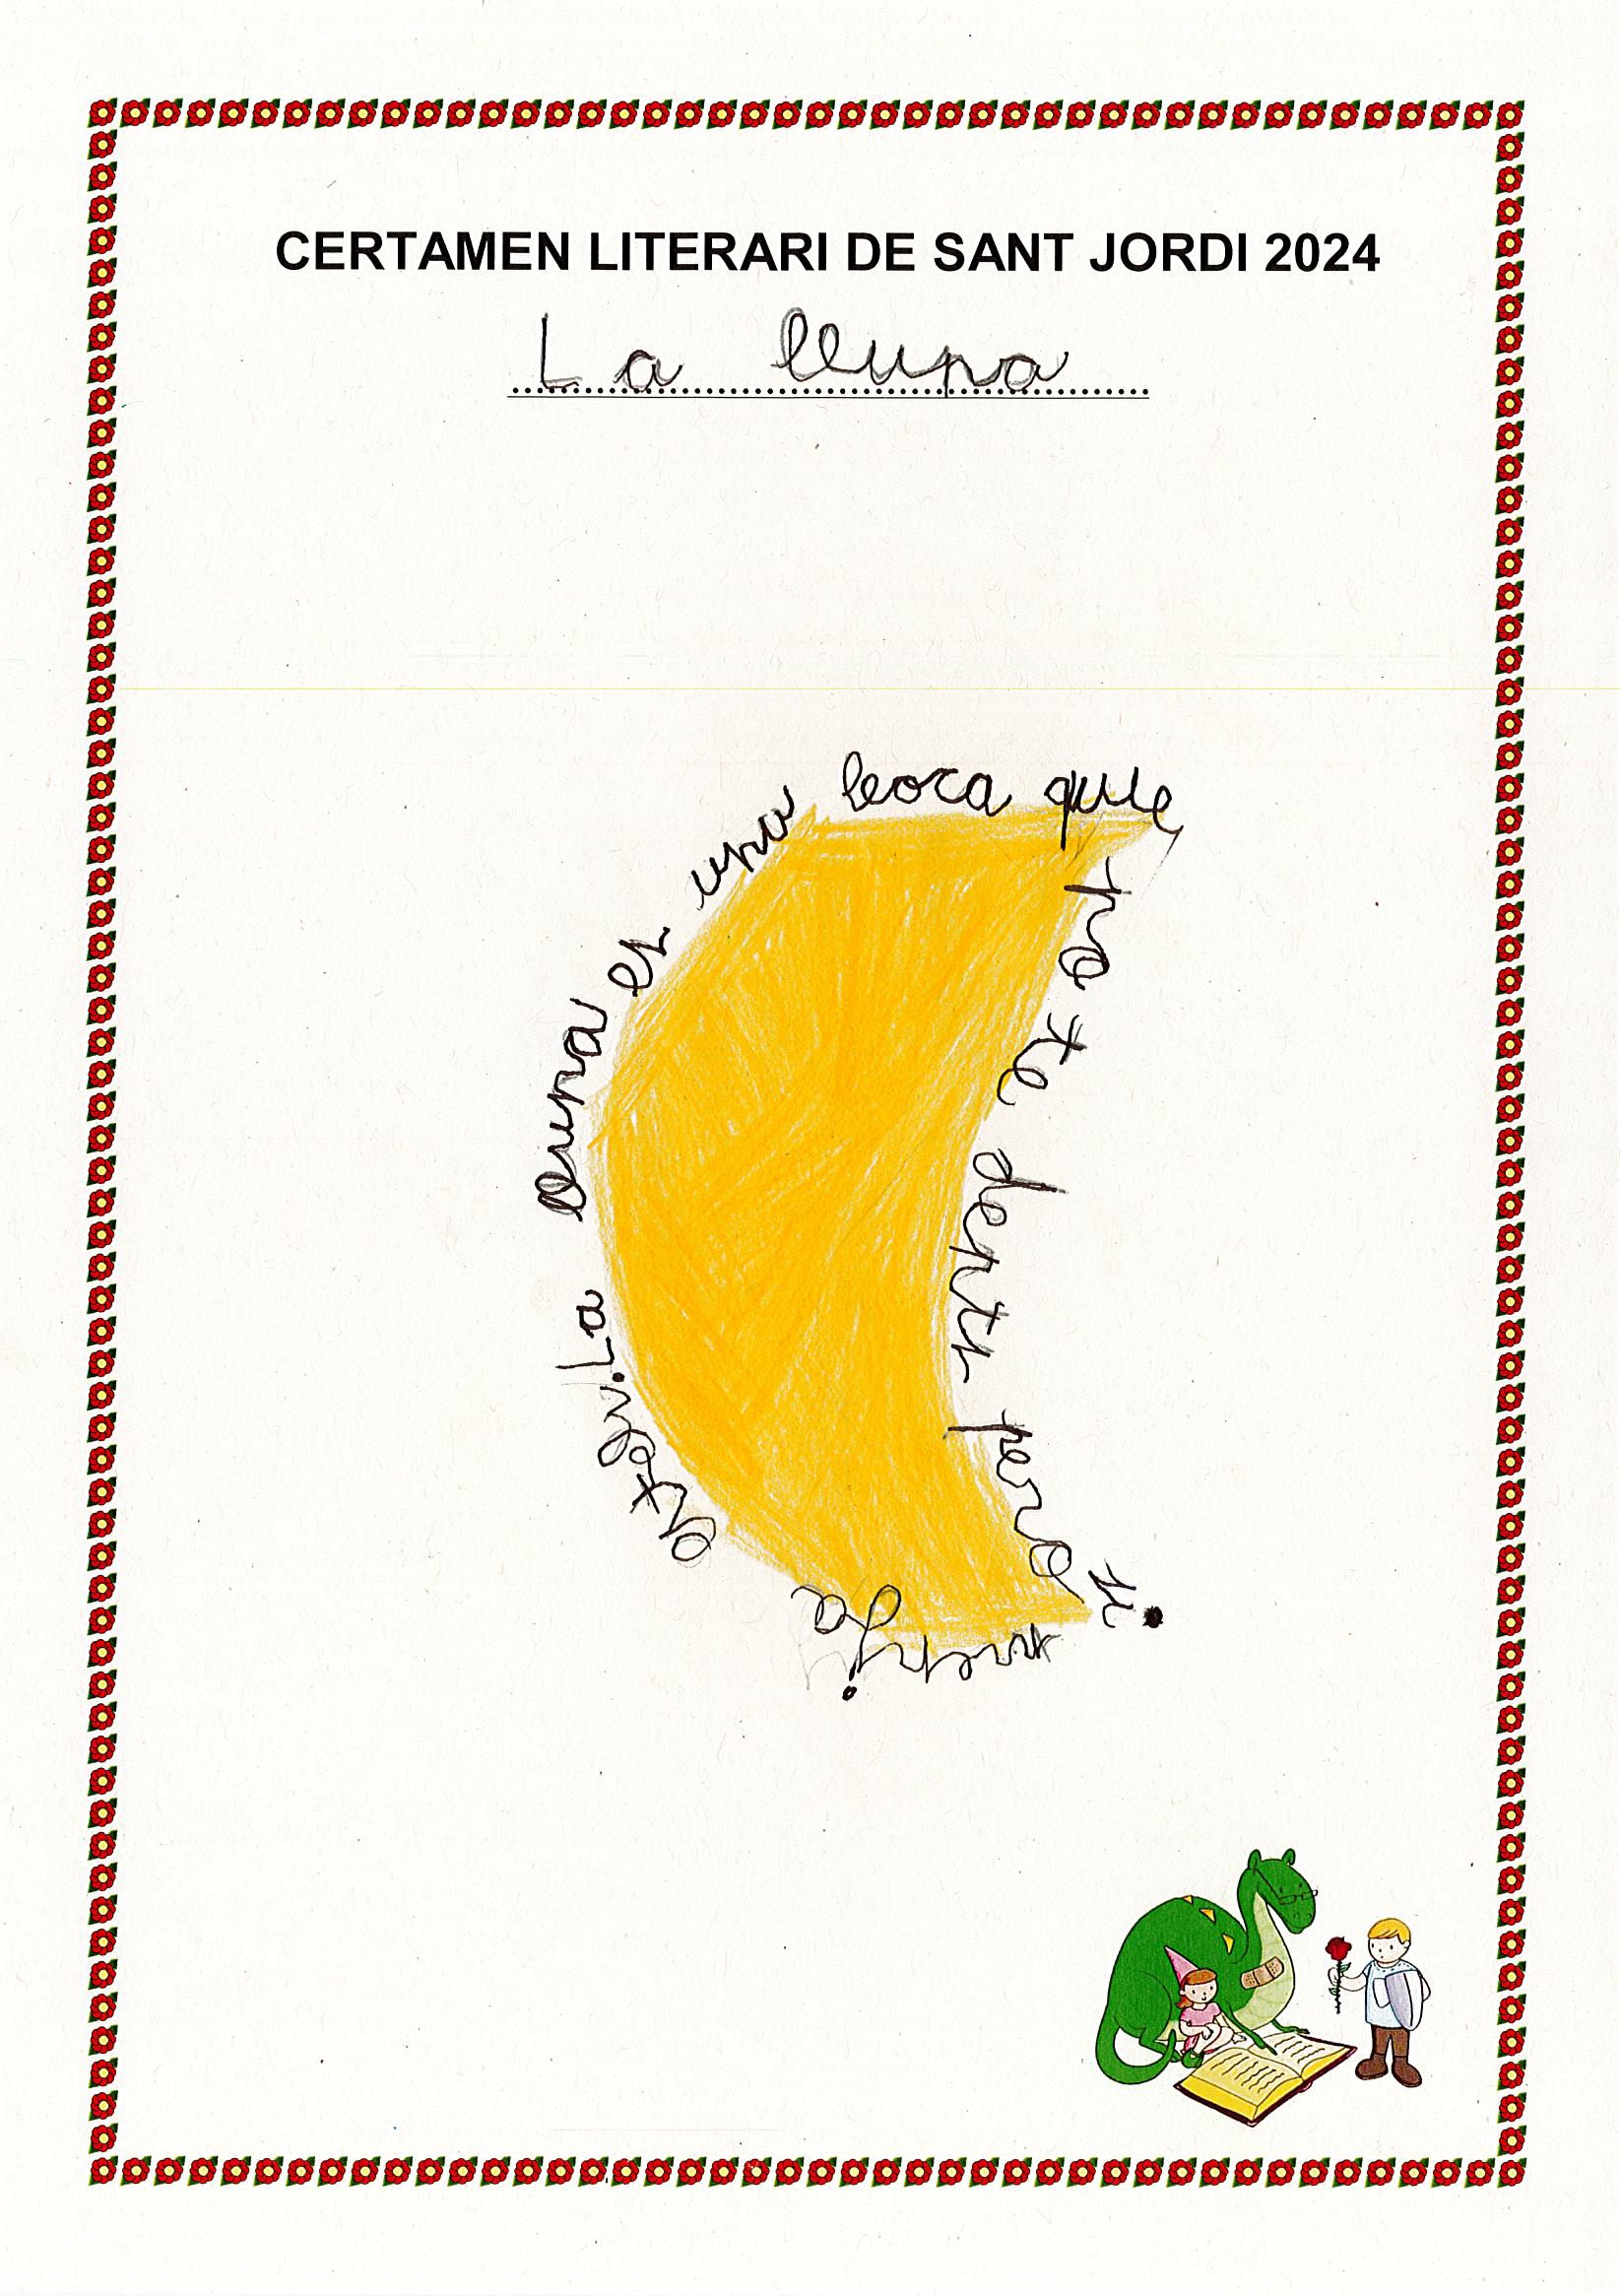 CERTAMEN LITERARI DE SANT JORDI 2024
La lluna
La lluna es una boca que no te dents pero si menja estels.